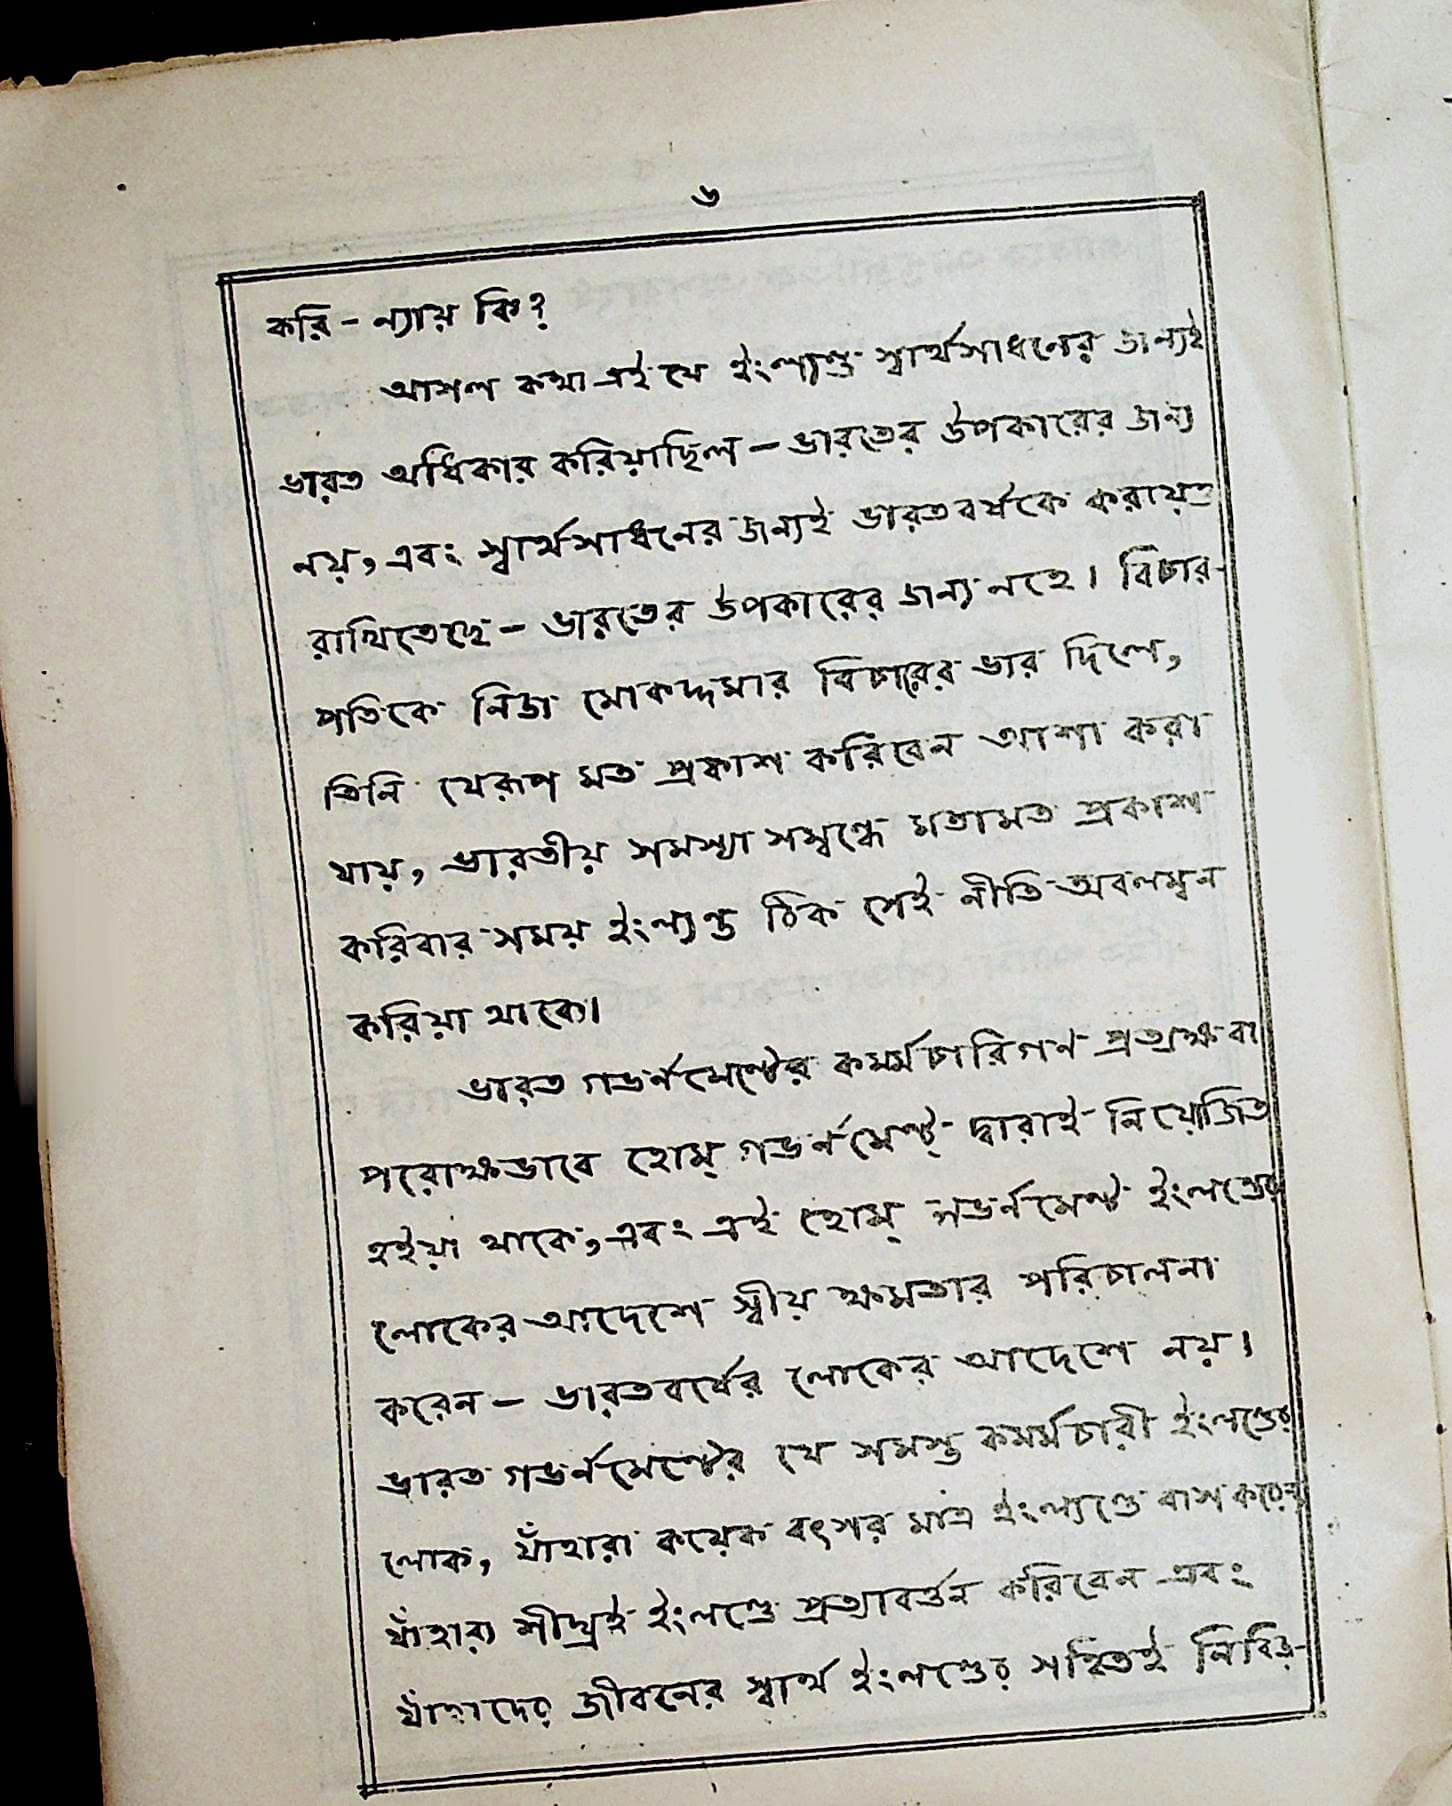 ৬
করি - ন্যায় কি?
আসল কথা এই যে ইংল্যাণ্ড স্বার্থসাধনের জন্যই
ভারত অধিকার করিয়াছিল - ভারতের উপকারের জন্য
নয়, এবং স্বার্থসাধনের জন্যই ভারতবর্ষকে করায়ত্ত
রাখিতেছে - ভারতের উপকারের জন্য নহে। বিচার-
পতিকে নিজ মোকদ্দমার বিচারের ভার দিলে,
তিনি যেরূপ মত প্রকাশ করিবেন আশা করা
যায়, ভারতীয় সমস্যা সম্বন্ধে মতামত প্রকাশ
করিবার সময় ইংল্যণ্ড ঠিক সেই নীতি অবলম্বন
করিয়া থাকে।
ভারত গভর্নমেণ্টের কমর্মচারিগণ প্রত্যক্ষ বা
পরোক্ষভাবে হোম্ গভর্নমেণ্ট্ দ্বারাই নিয়োজিত
হইয়া থাকে, এবং এই হোম্ গভর্নমেণ্ট ইংলণ্ডের
লোকের আদেশে স্বীয় ক্ষমতার পরিচালনা
করেন - ভারতবর্ষের লোকের আদেশে নয়।
ভারত গভর্নমেণ্টের যে সমস্ত কমর্মচারী ইংলণ্ডের
লোক, যাঁহারা কয়েক বৎসর মাত্র ইংল্যণ্ডে বাস করেন
যাঁহারা শীঘ্রই ইংলণ্ডে প্রত্যাবর্ত্তন করিবেন এবং
যাঁহাদের জীবনের স্বার্থ ইংলণ্ডের সহিতই নিবিড়-